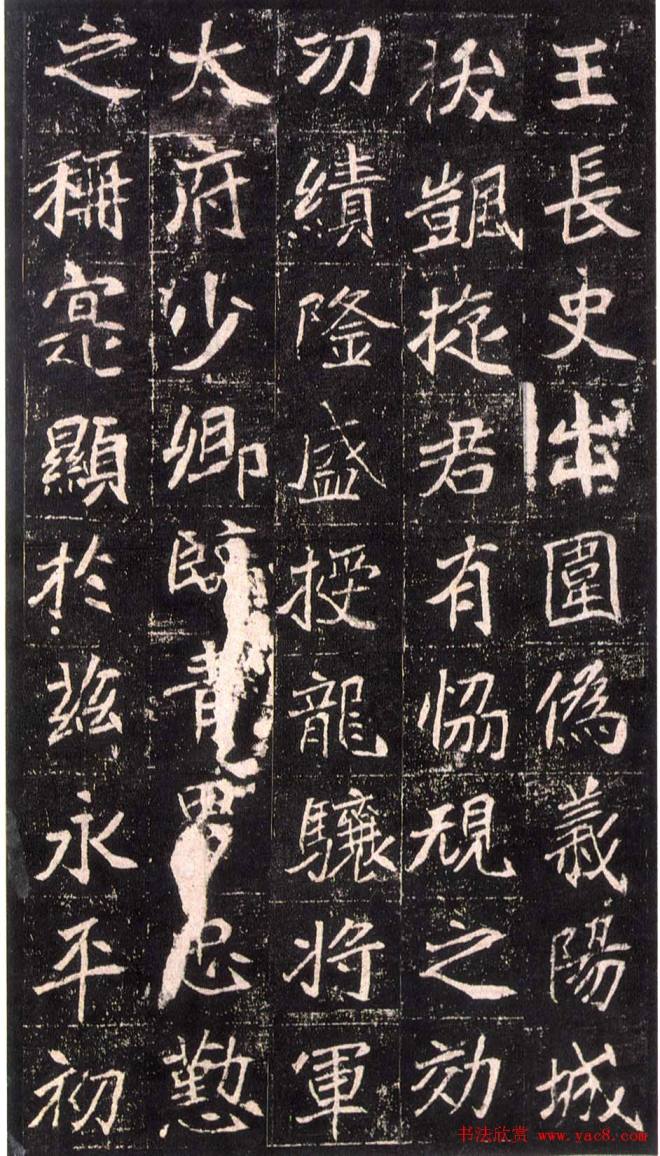 王長史出圍偽義陽城
拔凱旋君有恊規之効
功績隆盛授龍驤將軍
太府少卿臨青男忠懃
之稱寔顯於茲永平初
书法欣赏 www.yac8.com